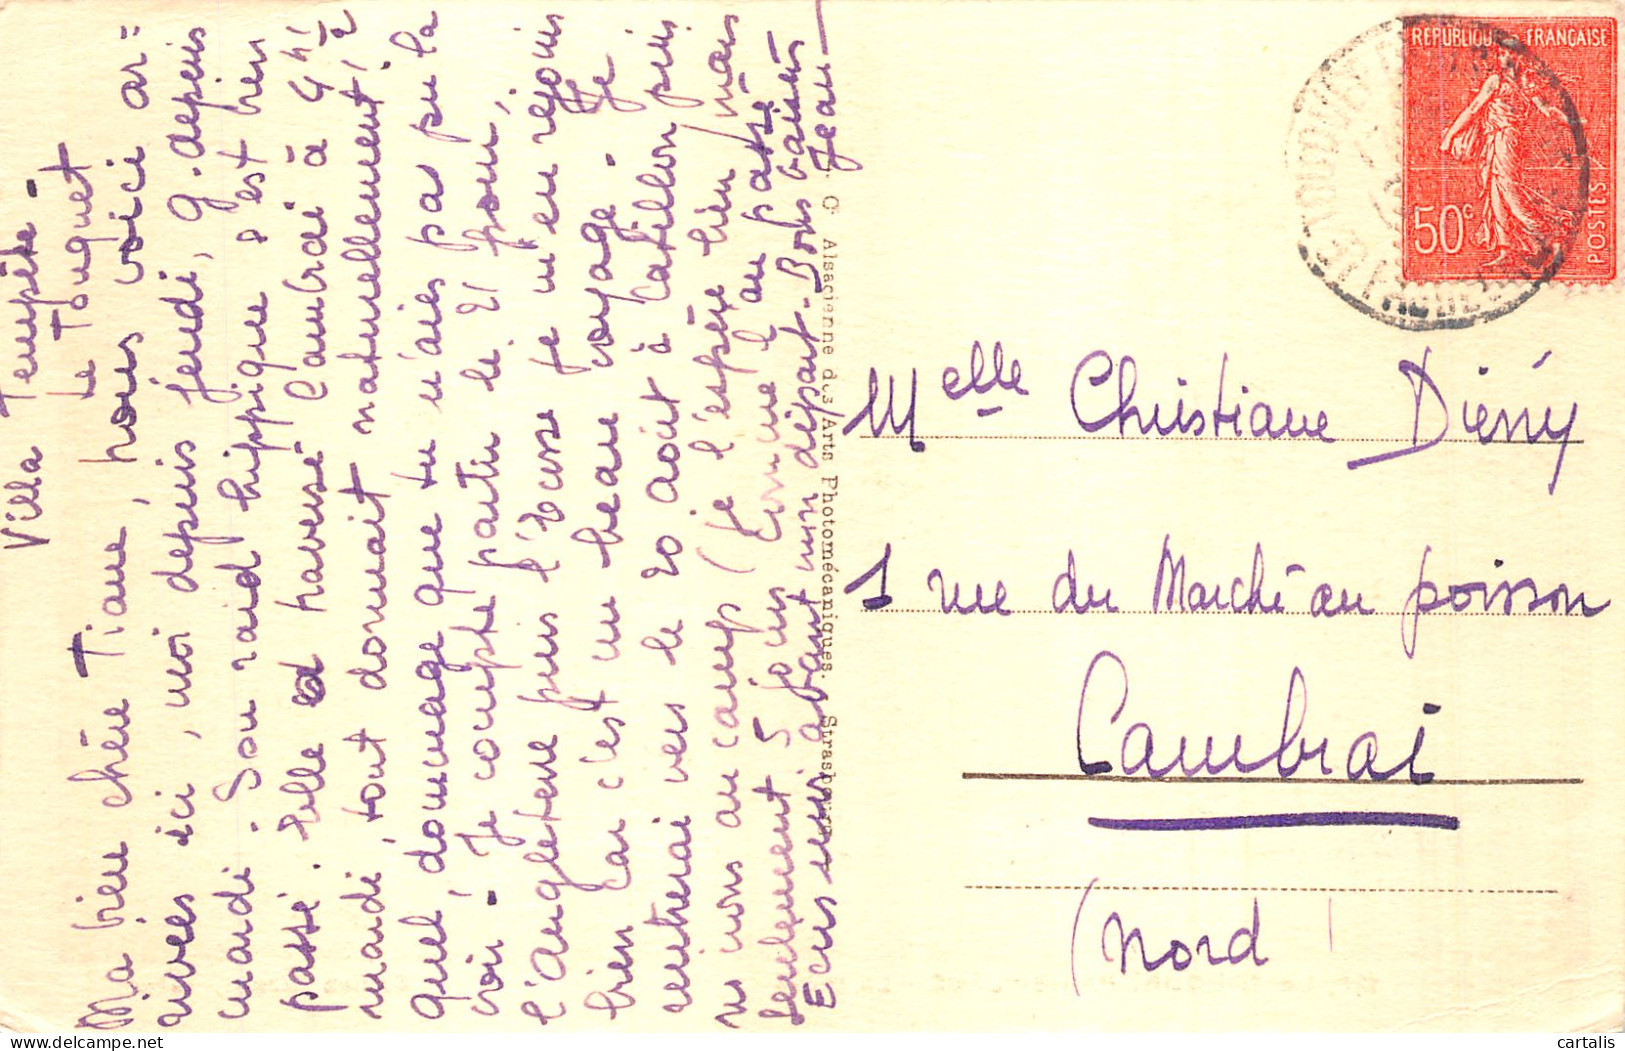 Villa Tempête -
Le Touquet
Ma bien chère Tiane, nous voici ar=
rivés ici, moi depuis jeudi, g. depuis
mardi. Son raid hippique s'est bien
passé. Elle a traversé Cambrai à 4h ½
mardi, tout dormait naturellement,
quel dommage que tu n'aies pas pu la
voir. Je compte partir le 21 pour
l'Angleterre puis l'Ecosse je m'en réjouis
bien car c'est un beau voyage. Je
rentrerai vers le 20 août à Catillon puis
nous au camps (je l'espère bien mais
seulement 5 jours comme l'an passé
Ecris moi avant mon départ. Bons baisers
Jean
Cie Alsacienne des Arts Photomécaniques. Strasbourg
RÉPUBLIQUE FRANÇAISE
50c
POSTES
LE TOUQUET PARIS-PLAGE
Melle Christiane Diény
1 rue du Marché au poisson
Cambrai
(Nord)
cartalis